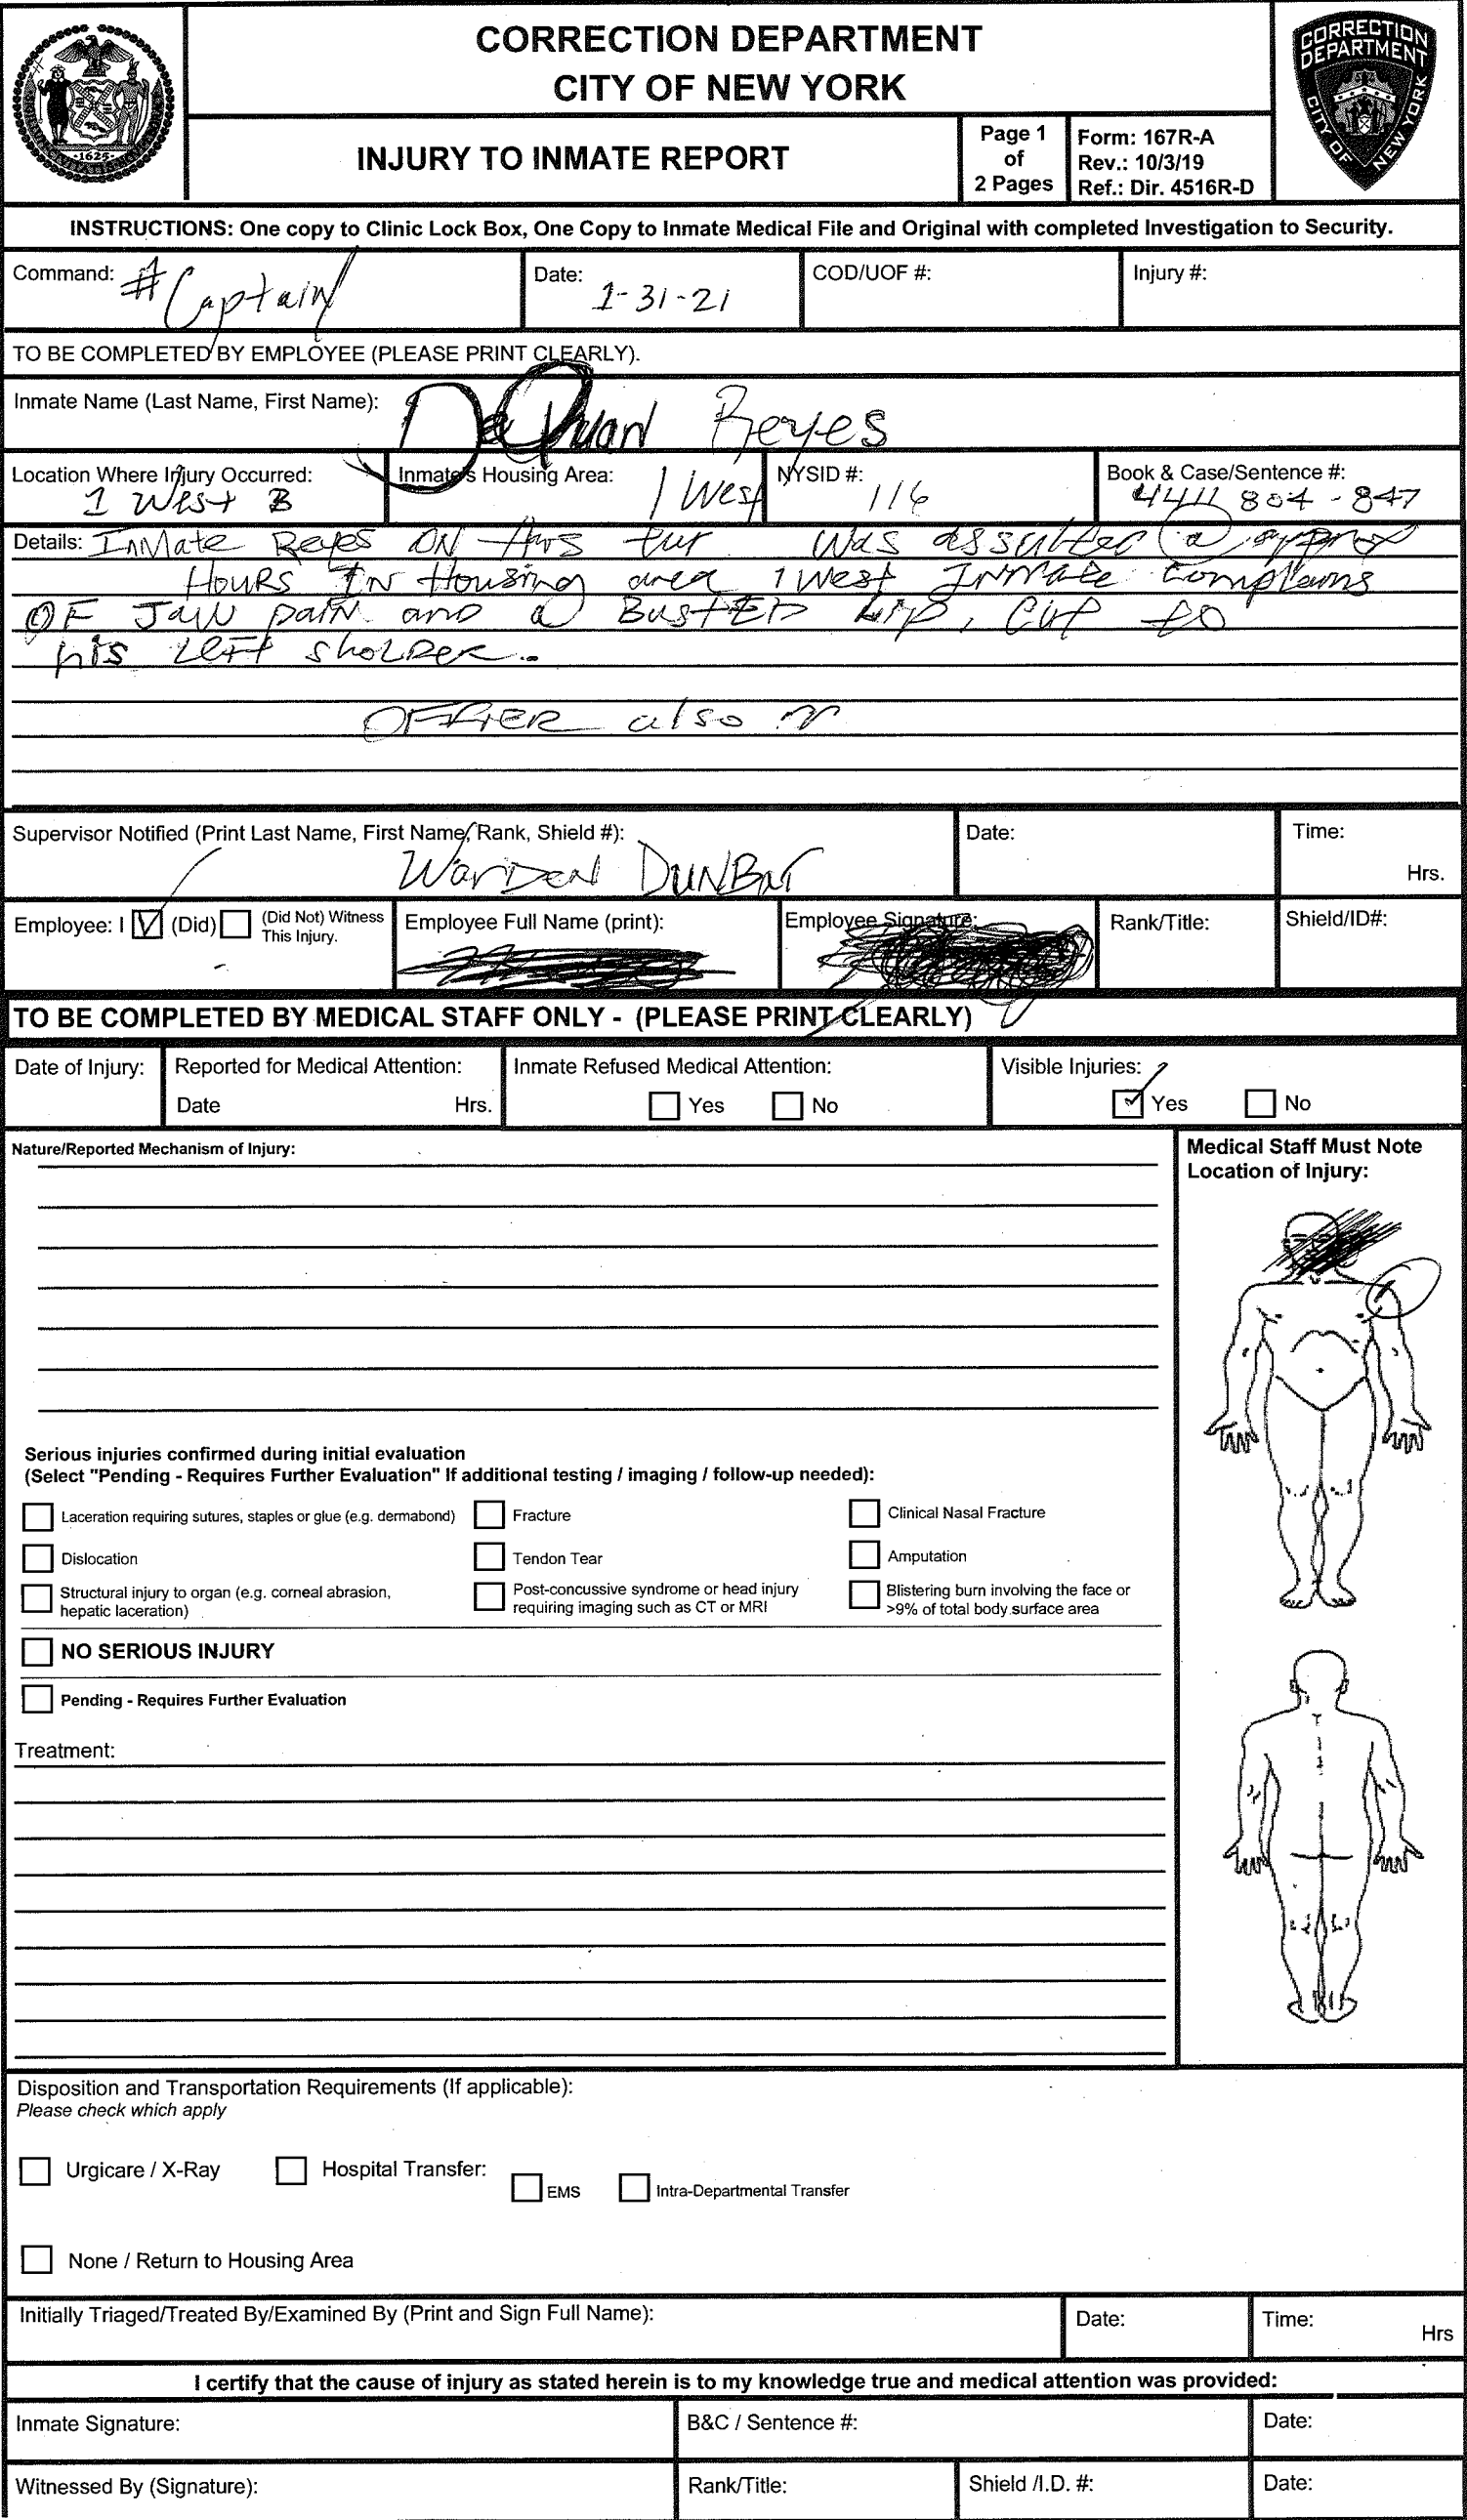 CORRECTION DEPARTMENT
CITY OF NEW YORK
INJURY TO INMATE REPORT
Page 1
of
2 Pages
Form: 167R-A
Rev.: 10/3/19
Ref.: Dir. 4516R-D
CORRECTION
DEPARTMENT
CITY OF NEW YORK
1625
INSTRUCTIONS: One copy to Clinic Lock Box, One Copy to Inmate Medical File and Original with completed Investigation to Security.
Command: # Captain
Date: 1-31-21
COD/UOF #:
Injury #:
TO BE COMPLETED BY EMPLOYEE (PLEASE PRINT CLEARLY).
Inmate Name (Last Name, First Name): DaQuan Reyes
Location Where Injury Occurred: 1 West B
Inmate's Housing Area: 1 West
NYSID #: 116
Book & Case/Sentence #: 4411 804-847
Details: InMate Reyes ON was @ approx
HOURS IN Housing area 1 West INMate Complains
OF JAW paiN and a BustED Lip, Cut to
his Left sholDer.
OFFICER also
Supervisor Notified (Print Last Name, First Name, Rank, Shield #): WarDen DUNBar
Date:
Time:
Hrs.
Employee: I (Did) (Did Not) Witness
This Injury.
Employee Full Name (print):
Employee Signature:
Rank/Title:
Shield/ID#:
TO BE COMPLETED BY MEDICAL STAFF ONLY - (PLEASE PRINT CLEARLY)
Date of Injury:
Reported for Medical Attention:
Date Hrs.
Inmate Refused Medical Attention:
Yes No
Visible Injuries:
Yes No
Nature/Reported Mechanism of Injury:
Medical Staff Must Note
Location of Injury:
Serious injuries confirmed during initial evaluation
(Select "Pending - Requires Further Evaluation" If additional testing / imaging / follow-up needed):
Laceration requiring sutures, staples or glue (e.g. dermabond)
Fracture
Clinical Nasal Fracture
Dislocation
Tendon Tear
Amputation
Structural injury to organ (e.g. corneal abrasion,
hepatic laceration)
Post-concussive syndrome or head injury
requiring imaging such as CT or MRI
Blistering burn involving the face or
>9% of total body surface area
NO SERIOUS INJURY
Pending - Requires Further Evaluation
Treatment:
Disposition and Transportation Requirements (If applicable):
Please check which apply
Urgicare / X-Ray
Hospital Transfer:
EMS
Intra-Departmental Transfer
None / Return to Housing Area
Initially Triaged/Treated By/Examined By (Print and Sign Full Name):
Date:
Time:
Hrs
I certify that the cause of injury as stated herein is to my knowledge true and medical attention was provided:
Inmate Signature:
B&C / Sentence #:
Date:
Witnessed By (Signature):
Rank/Title:
Shield /I.D. #:
Date: